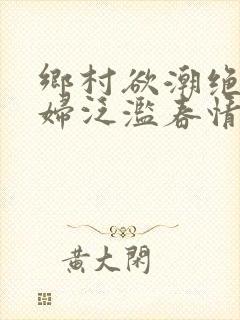 鄉村欲潮绝
婦泛濫春情
黄大閑